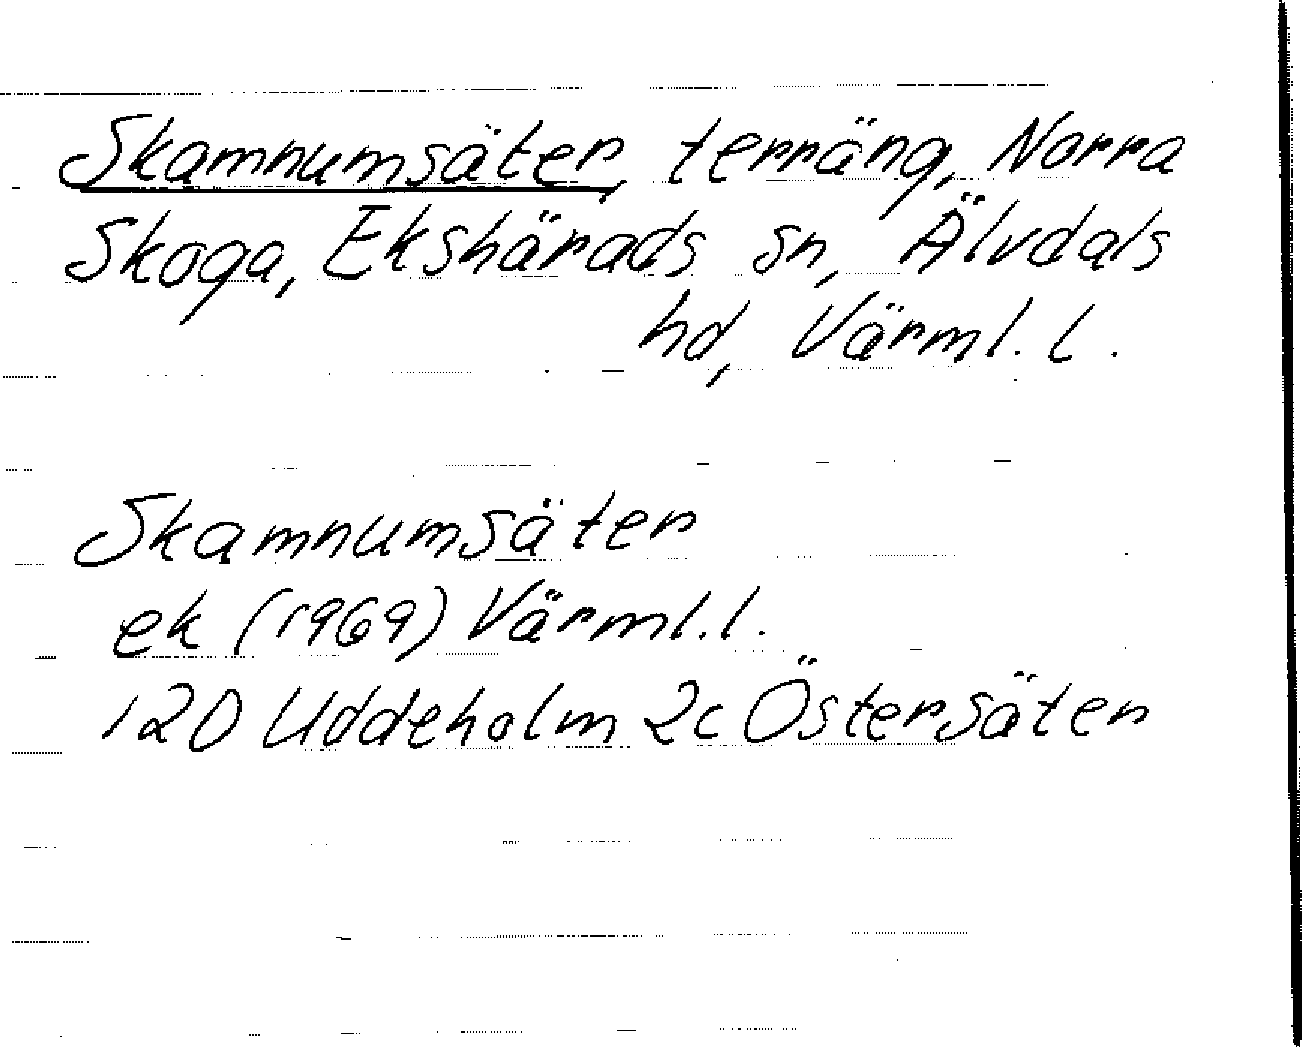 Skamnumsäter, terräng, Norra
Skoga, Ekshärads sn, Älvdals
hd, Värml. l.
Skamnumsäter
ek (1969) Värml. l.
12D Uddeholm 2c Östersäter